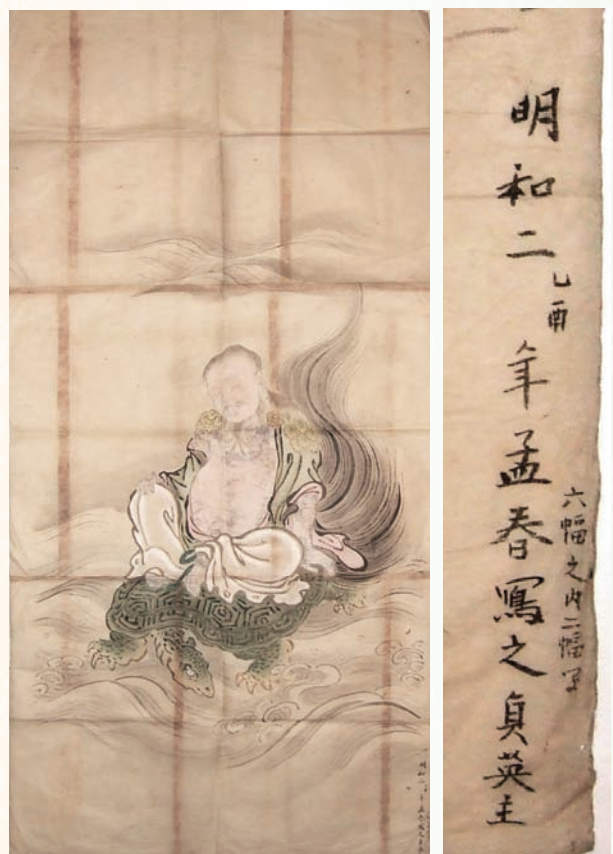 明和二乙酉年孟春寫之貞英主
六幅之内二幅写